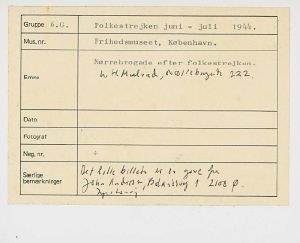 Gruppe 6.G. Folkestrejken juni - juli 1944.
Mus.nr. Frihedsmuseet, København.
Nørrebrogade efter folkestrejken.
Emne Nørrebrogade 222.
Dato
Fotograf
Neg.nr.
Særlige Det lille billede er en gave fra
bemærkninger John Andersen, 1 2100 Ø.